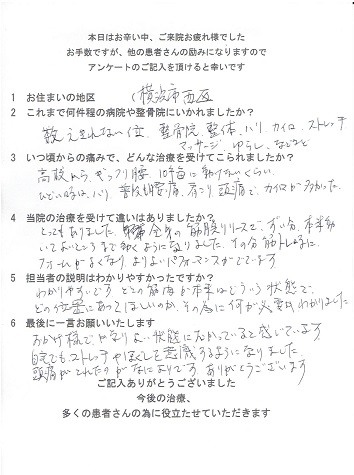 本日はお辛い中、ご来院お疲れ様でした
お手数ですが、他の患者さんの励みになりますので
アンケートのご記入を頂けると幸いです
1 お住まいの地区 (横浜市西区
2 これまで何件程の病院や整骨院にいかれましたか?
数えきれない位、整骨院、整体、ハリ、カイロ、ストレッチ
マッサージ、ゆらし、などなど
3 いつ頃からの痛みで、どんな治療を受けてこられましたか?
高校から、ぎっくり腰 10年前に動けないくらい
ひどい時は、ハリ 普段は腰痛、肩こり、頭痛で、カイロが多かった。
4 当院の治療を受けて違いはありましたか?
とってもありました。全身の筋膜リリースで、ずい分、本来動
いてほしいところまで動くようになりました。その分筋トレ時に、
フォームがよくなり よりよいパフォーマンスができています
5 担当者の説明はわかりやすかったですか?
わかりやすいです どこの筋肉が本来はどういう状態で、
どの位置にあってほしいのか、その為に何が必要かわかりました
6 最後に一言お願いいたします
おかげ様でかなりよい状態にむかっていると感じています
自宅でもストレッチやほぐしを意識するようになりました。
頭痛がとれたのがなによりです。ありがとうございます
ご記入ありがとうございました
今後の治療、
多くの患者さんの為に役立たせていただきます